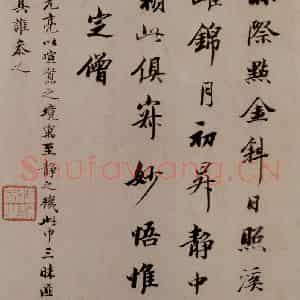 際點金斜日照溪
躍錦月初昇靜中
籟此俱寂妙悟惟
定僧
亮以喧之境至靜之機此中三昧匪
其誰參之
Shufawang.CN